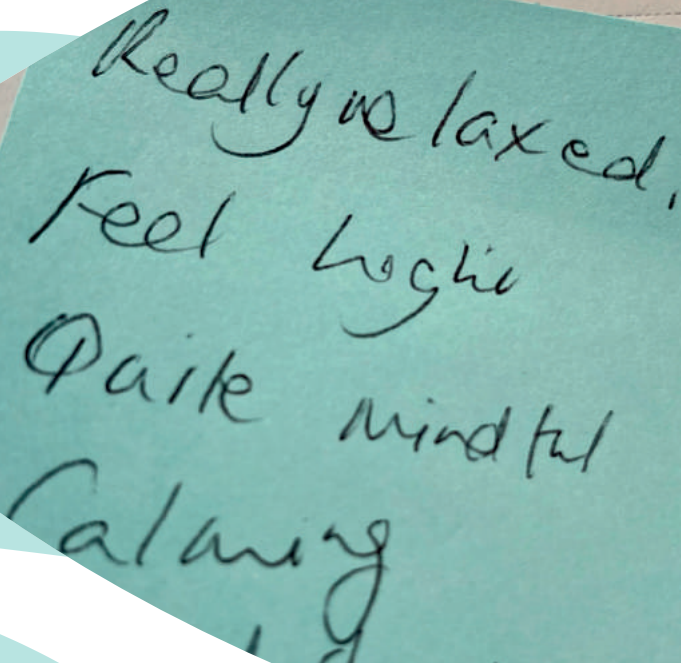 Really relaxed,
Feel
Quite mindful
Calming